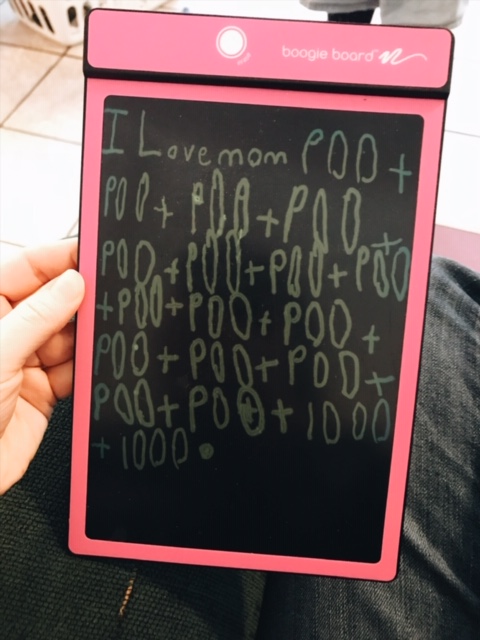 boogie board
I Love mom POO +
POO + POO + POO +
POO + POO + POO + POO
+ POO + POO + POO +
POO + POO + POO +
POO + POO + 1000
+ 1000.